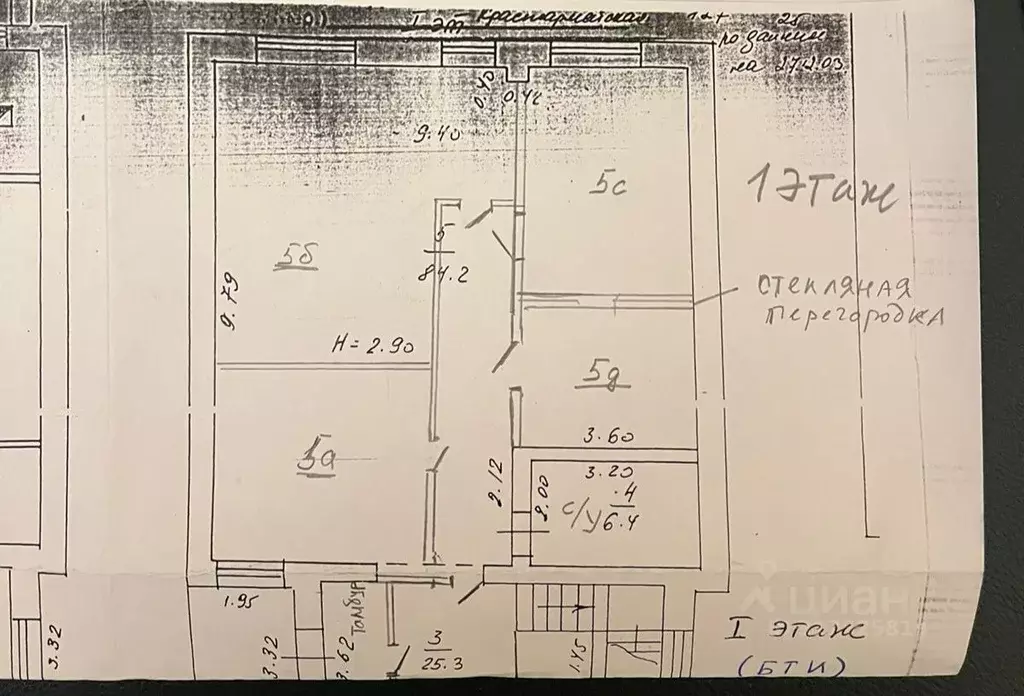 I эт Красноармейская
25
по данным
на 27.12.03.
0.40
0.42
9.40
5с
1 этаж
5
84.2
5б
9.79
стекляная
перегородка
H = 2.90
5д
3.60
5а
2.12
3.20
2.00
с/у
4
6.4
1.95
Тамбур
3.32
3.32
3.62
3
25.3
1.45
циан
I этаж
(БТИ)